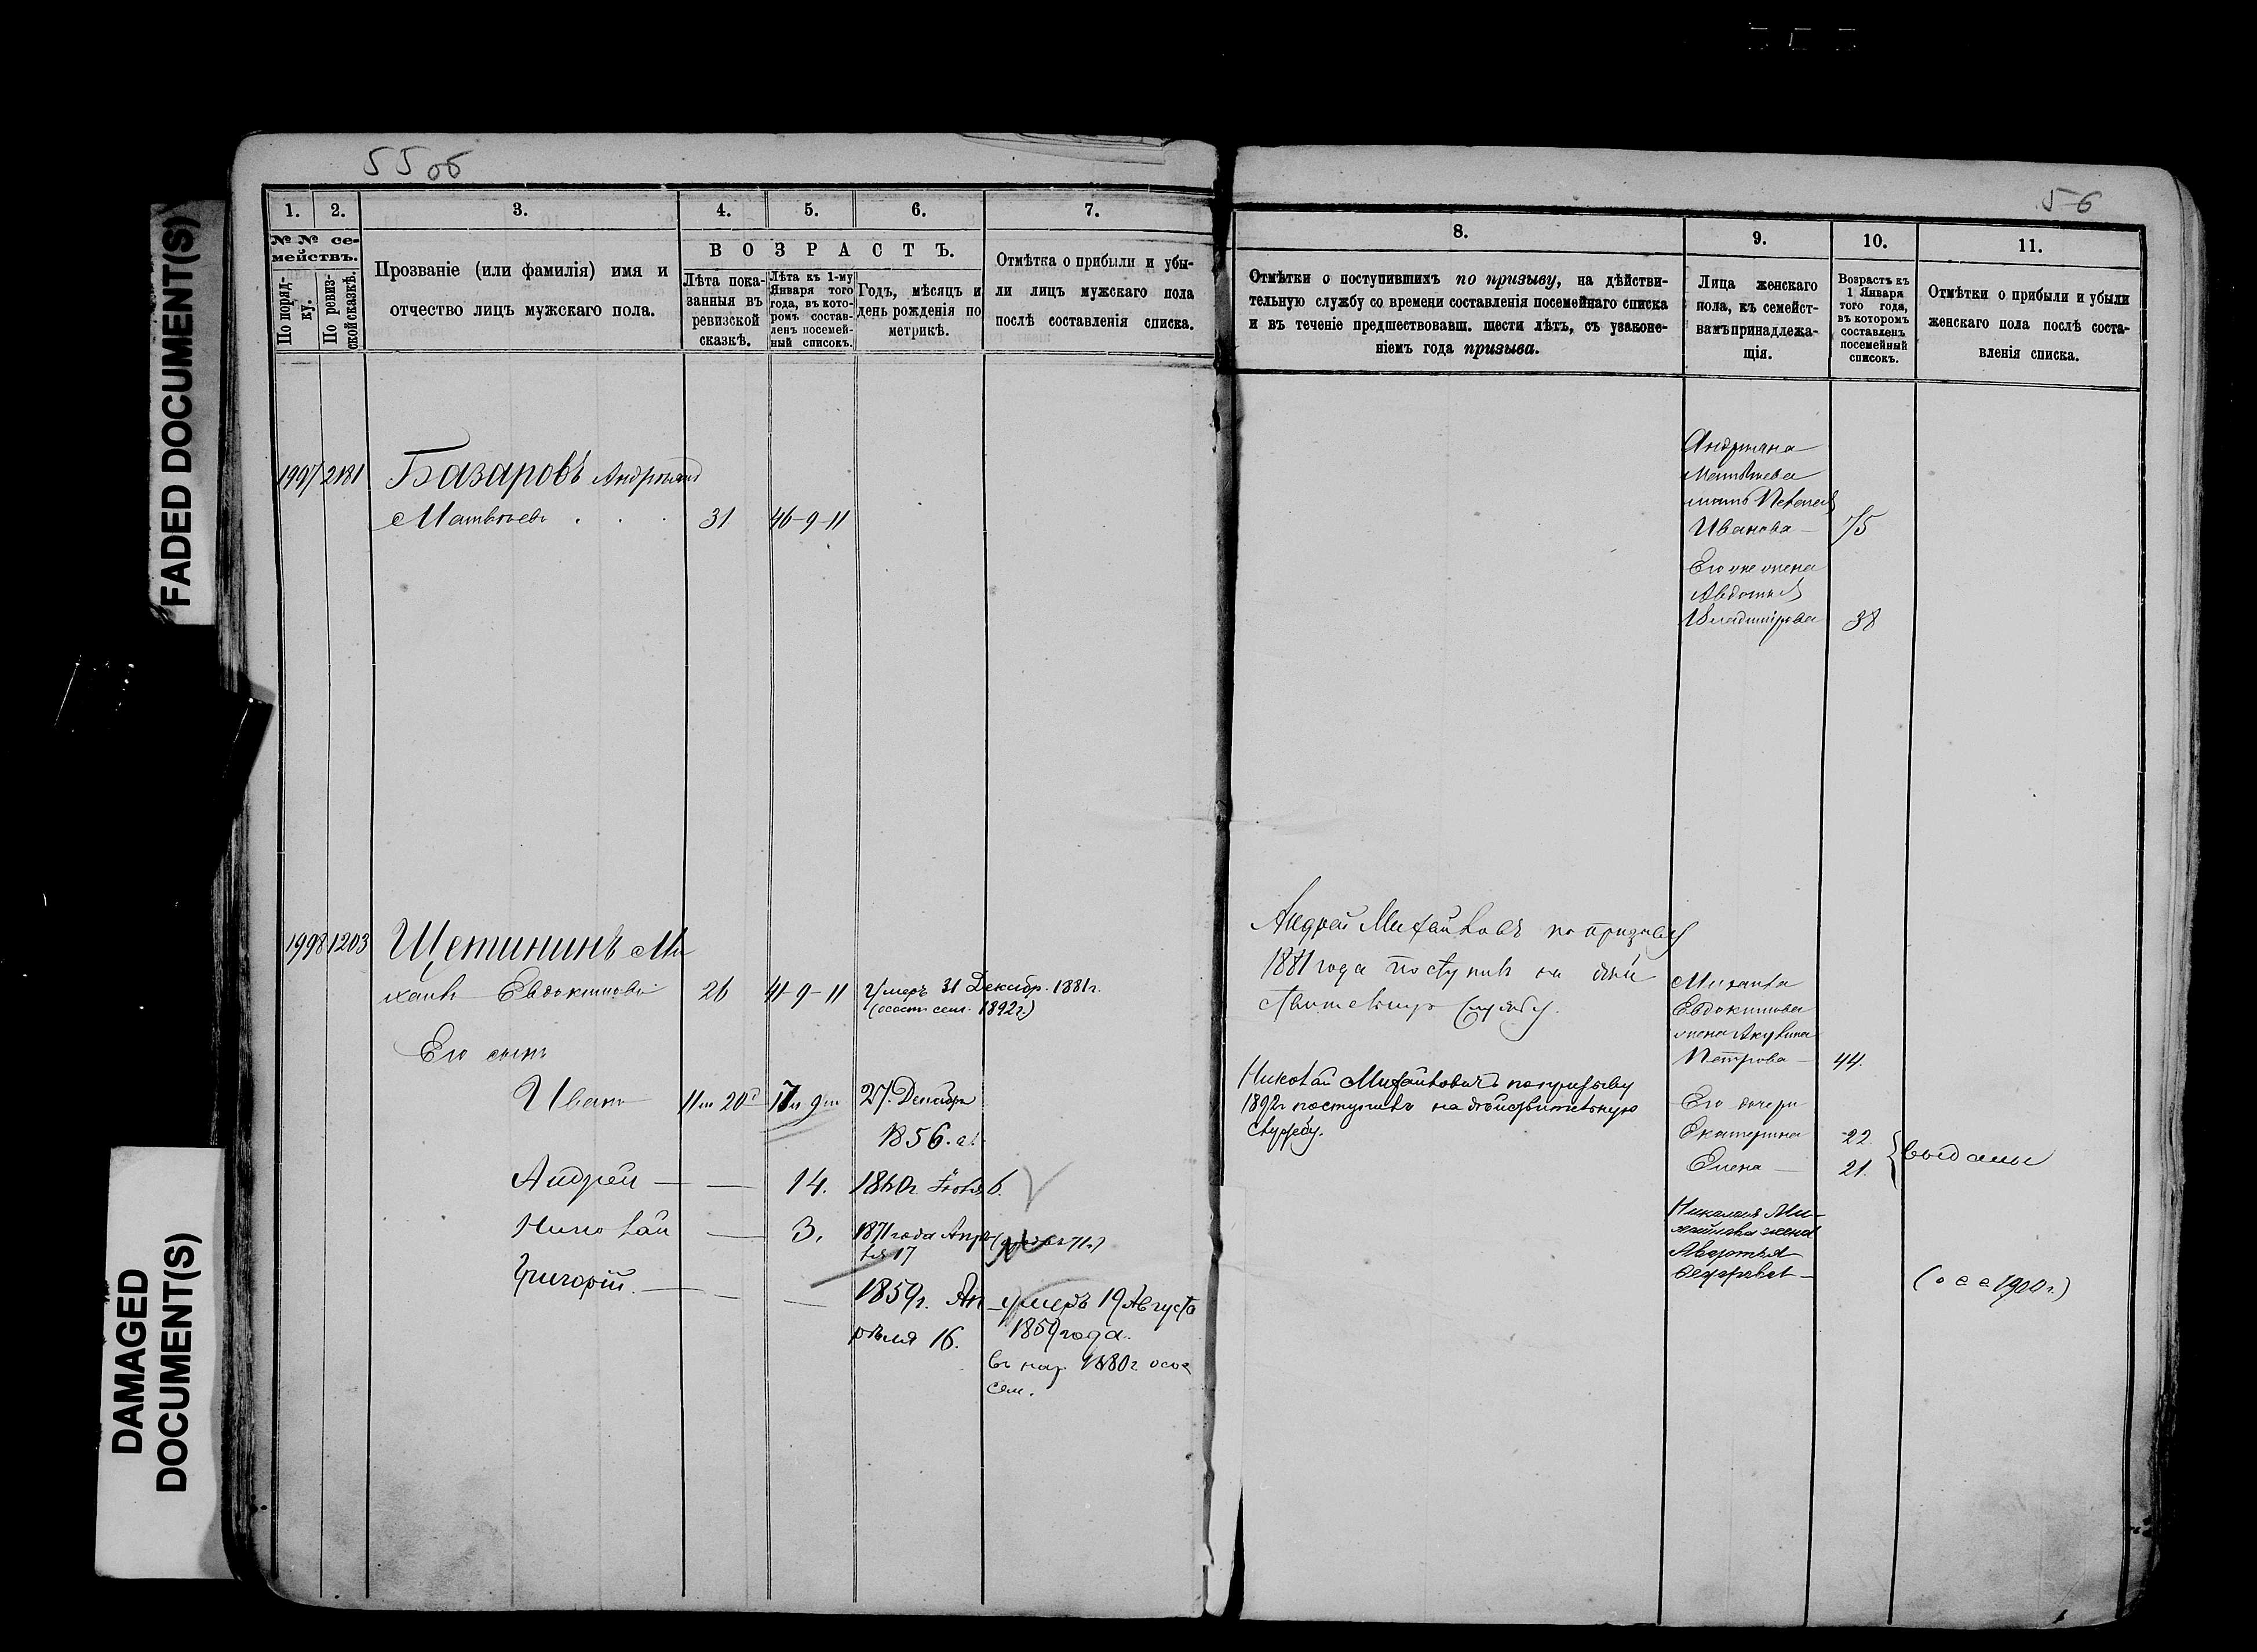 FADED DOCUMENT(S)
DAMAGED
DOCUMENT(S)
55 об
1.
2.
3.
4.
5.
6.
7.
№ № се-
мействъ.
По поряд-
ку.
По ревиз-
ской сказкѣ.
Прозваніе (или фамилія) имя и
отчество лицъ мужскаго пола.
ВОЗРАСТЪ.
Лѣта пока-
занныя въ
ревизской
сказкѣ.
Лѣта къ 1-му
Января того
года, въ кото-
ромъ состав-
ленъ посемей-
ный списокъ.
Годъ, мѣсяцъ и
день рожденія по
метрикѣ.
Отмѣтка о прибыли и убы-
ли лицъ мужскаго пола
послѣ составленія списка.
1997 2181 Базаровъ Андріянъ
Матвѣевъ . . . 31 46-9-11
1998 1203 Щетининъ Ми
хаилъ Евдокимовъ 26 41-9-11 умеръ 31 Декабр. 1881г.
1892г.)
Его сынъ
Иванъ 11м 20д 17л 9м 27. Декабря
1856.
Андрей — — 14. 1860г Іюля 6.
Николай — 3. 1871 года Апрѣ
ля 17
Григорій. — — — 1859г. Ап умеръ 19 Августа
рѣля 16. 1859 года.
1880г
сем.
56
8.
9.
10.
11.
Отмѣтки о поступившихъ по призыву, на дѣйстви-
тельную службу со времени составленія посемейнаго списка
и въ теченіе предшествовавш. шести лѣтъ, съ узаконе-
ніемъ года призыва.
Лица женскаго
пола, къ семейст-
вамъ принадлежа-
щія.
Возрастъ къ
1 Января
того года,
въ которомъ
составленъ
посемейный
списокъ.
Отмѣтки о прибыли и убыли
женскаго пола послѣ соста-
вленія списка.
Андріяна
Матвѣева
мать
Иванова — 75
Его же жена
Авдотья
Владимірова 38
Андрей Михайловъ по призыву
1881 года поступилъ на дѣй
ствительную службу.
Николай Михайловичъ по призыву
1892г поступилъ на дѣйствительную
службу.
Михаила
Евдокимова
жена Акулина
Петрова — 44.
Его дочери
Екатерина 22
Елена — 21. выданы
Николая Ми-
хайлова жена
Авдотья
1900г.)